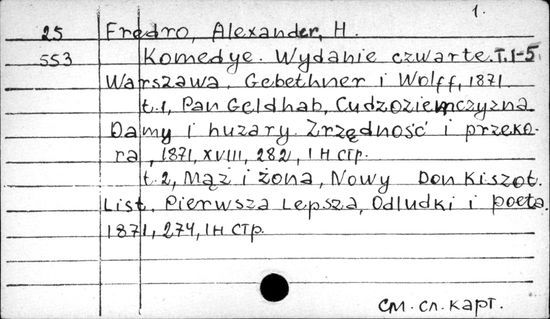 1.
25 Fredro, Alexander, H.
553 Komedye. Wydanie czwarte. T.1-5
Warszawa, Gebethner i Wolff, 1871
t.1, Pan Geldhab, Cudzoziemczyzna
Damy i huzary. Zrzędność i przeko-
ra, 1871, XVIII, 282, 1 н стр.
t.2, Mąż i żona, Nowy Don Kiszot.
List, Pierwsza Lepsza, Odludki i poeta.
1871, 274, 1 н стр.
см. сл. карт.